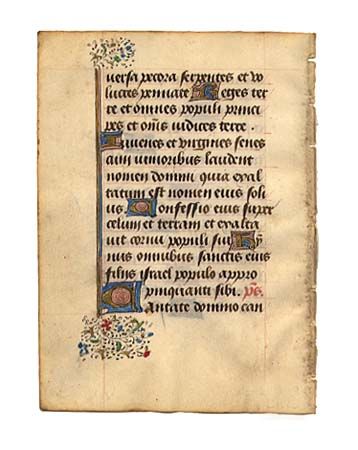 uersa pecora serpentes et uo
lucres pennate Reges ter
re et omnes populi princi
pes et om̄s iudices terre.
Iuuenes et uirgines senes
cum iunioribus laudent
nomen domini quia exal
tatum est nomen eius soli
us Confessio eius super
celum et terram et exalta
uit cornu populi sui Hỹ
nus omnibus sanctis eius
filiis israel populo appro
pinquanti sibi. p̄s.
Cantate domino can